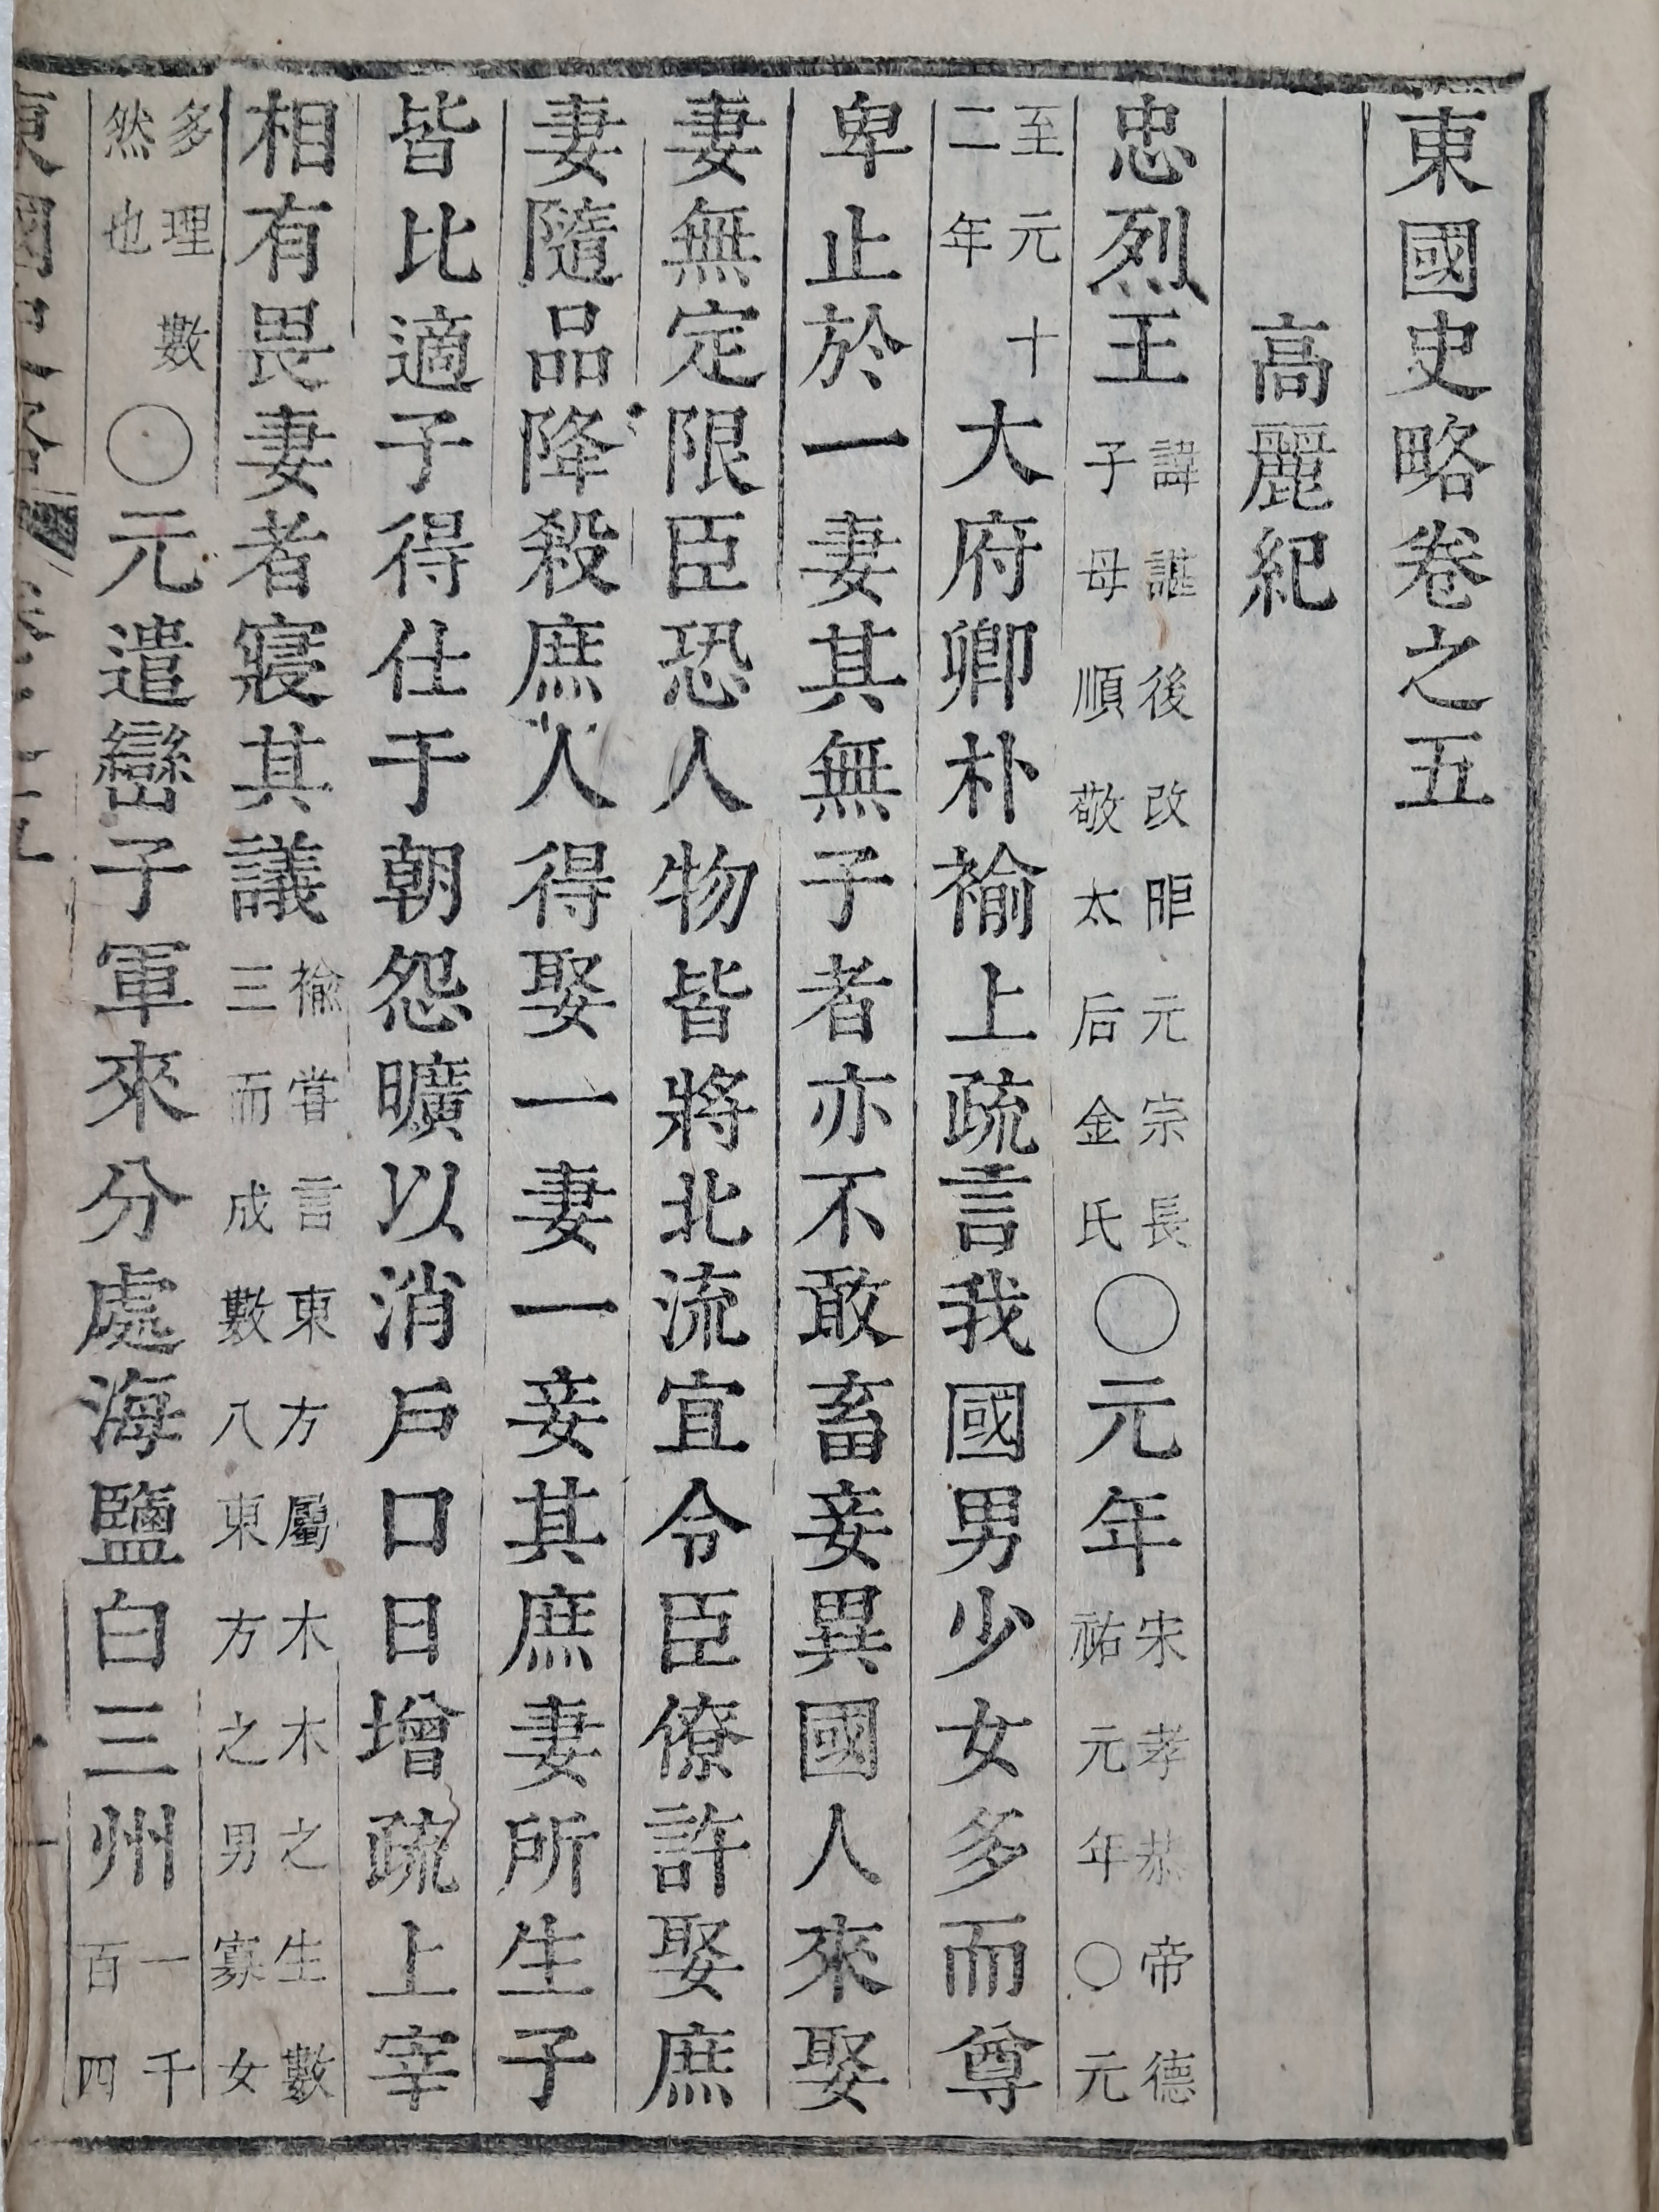 東國史略卷之五
高麗紀
忠烈王諱諶後改昛元宗長子母順敬太后金氏○元年宋孝恭帝德祐元年○元
至元十二年大府卿朴褕上疏言我國男少女多而尊
卑止於一妻其無子者亦不敢畜妾異國人來娶
妻無定限臣恐人物皆將北流宜令臣僚許娶庶
妻隨品降殺庶人得娶一妻一妾其庶妻所生子
皆比適子得仕于朝怨曠以消戶口日增疏上宰
相有畏妻者寢其議褕嘗言東方屬木木之生數三而成數八東方之男寡女
多理數然也○元遣蠻子軍來分處海鹽白三州一千百四